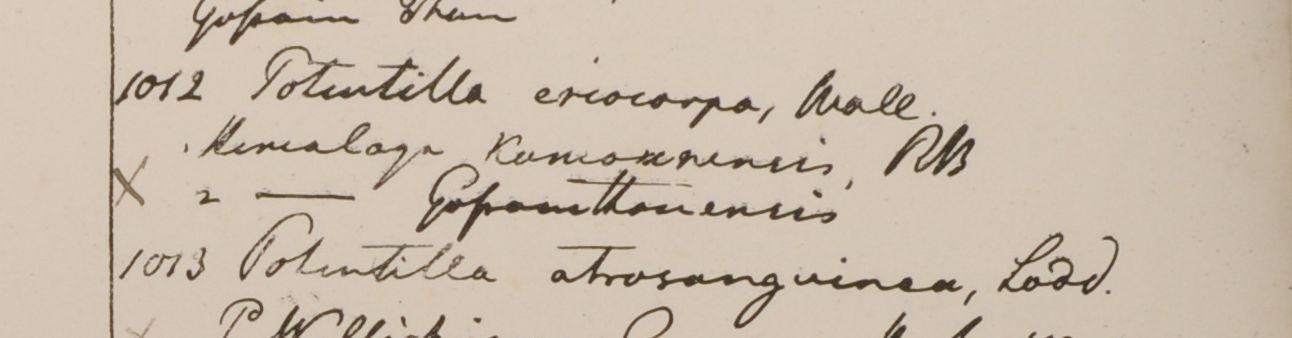 Gossain Than
1012 Potentilla eriocarpa, Wall.
Himalaya Kumaonensis, RB
2 — Gossainthanensis
1013 Potentilla atrosanguinea, Lodd.
P. Wallichi